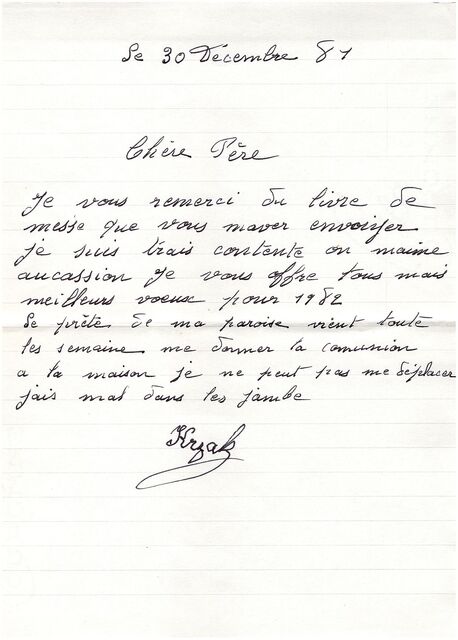 Le 30 Décembre 81
Chère Père
Je vous remerci du livre de
messe que vous maver envoiyer
je suis trais contente on maime
aucassion Je vous offre tous mais
meilleurs voeux pour 1982
Le prète de ma paroise vient toute
les semaine me donner la comunion
a la maison je ne peut pas me déplacer
jais mal dans les jambe
Krzak